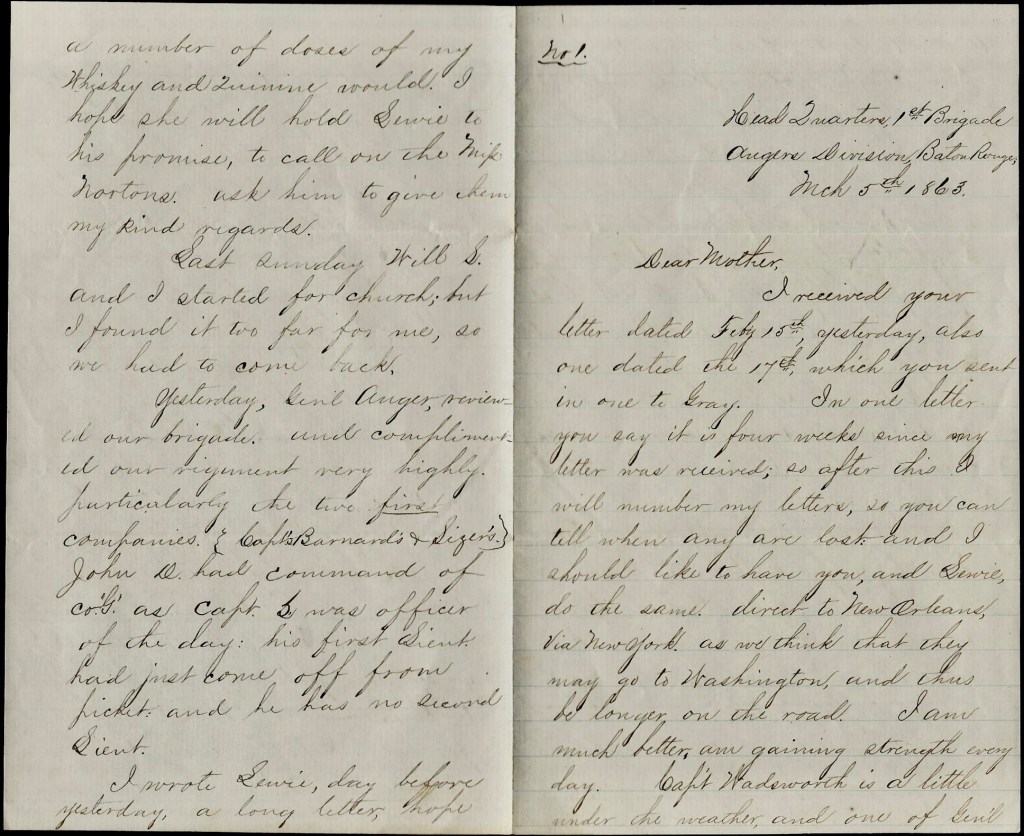 a number of doses of my
Whiskey and Quinine would. I
hope she will hold Lewie to
his promise, to call on the Miss
Nortons. ask him to give them
my kind regards.
Last sunday Will S.
and I started for church; but
I found it too far for me, so
we had to come back.
Yesterday, Gen'l Auger, review-
ed our brigade. and compliment-
ed our regiment very highly.
particularly the two first
companies. { Capt's Barnard's & Sizer's. }
John D. had command of
Co "G" as Capt. S. was officer
of the day: his first Lieut.
had just come off from
picket: and he has no second
Lieut.
I wrote Lewie, day before
yesterday, a long letter, hope
No 1.
Head Quarters, 1st Brigade
Augers Division, Baton Rouge,
Mch 5th 1863.
Dear Mother,
I received your
letter dated Feby 15th, yesterday, also
one dated the 17th, which you sent
in one to Gray. In one letter
you say it is four weeks since my
letter was received; so after this I
will number my letters, so you can
tell when any are lost: and I
should like to have you, and Lewie,
do the same. direct to New Orleans,
Via New York. as we think that they
may go to Washington, and thus
be longer on the road. I am
much better, am gaining strength every
day. Capt Wadsworth is a little
under the weather, and one of Gen'l